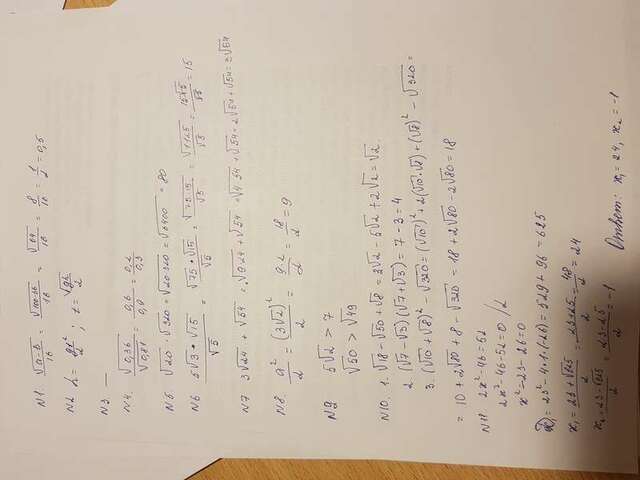 N1. √(a-b)/16 = √(100-36)/16 = √64/16 = 8/16 = 1/2 = 0,5
N2 h = gt²/2 ; t = √gh/2
N3 —
N4. √0,36/√0,81 = 0,6/0,9 = 0,2/0,3
N5. √20 · √320 = √20·320 = √6400 = 80
N6 5√3 · √15/√5 = √75 · √15/√5 = √75·15/√5 = √1125/√5 = 15√5/√5 = 15
N7 3√24 + √54 = √9·24 + √54 = √4·54 + √54 = 2√54 + √54 = 3√54
N8. a²/2 = (3√2)²/2 = 9·2/2 = 18/2 = 9
N9 5√2 > 7
√50 > √49
N10. 1. √18 - √50 + √8 = 3√2 - 5√2 + 2√2 = √2.
2. (√7 - √3)(√7 + √3) = 7 - 3 = 4
3. (√10 + √8)² - √320 = (√10)² + 2(√10·√8) + (√8)² - √320 =
= 10 + 2√80 + 8 - √320 = 18 + 2√80 - 2√80 = 18
N11 2x² - 46 = 52
2x² - 46 - 52 = 0 /2
x² - 23 - 26 = 0
= 23² - 4·1·(-26) = 529 + 96 = 625
x₁ = 23 + √625/2 = 23+25/2 = 48/2 = 24
x₂ = 23 - √625/2 = 23-25/2 = -1
Ответ: x₁ = 24, x₂ = -1